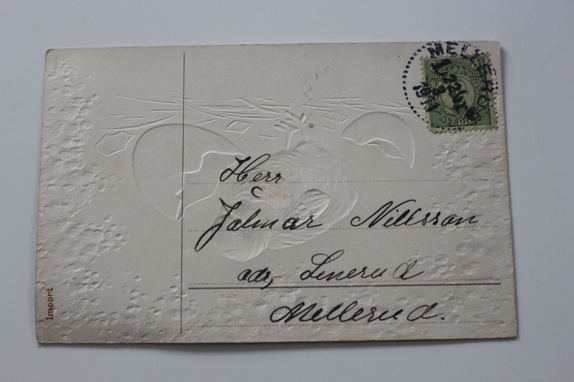 MELLERUD
Herr
Jalmar Nillsson
adr, Lenerud
Mellerud.
Import